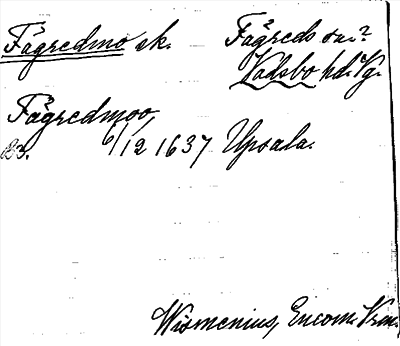 Fägredmo sk. Fägreds sn.?
Vadsbo hd. Vg.
Fägredmoo,
23. 6/12 1637 Upsala.
Wismenius, Encom. Vrm.